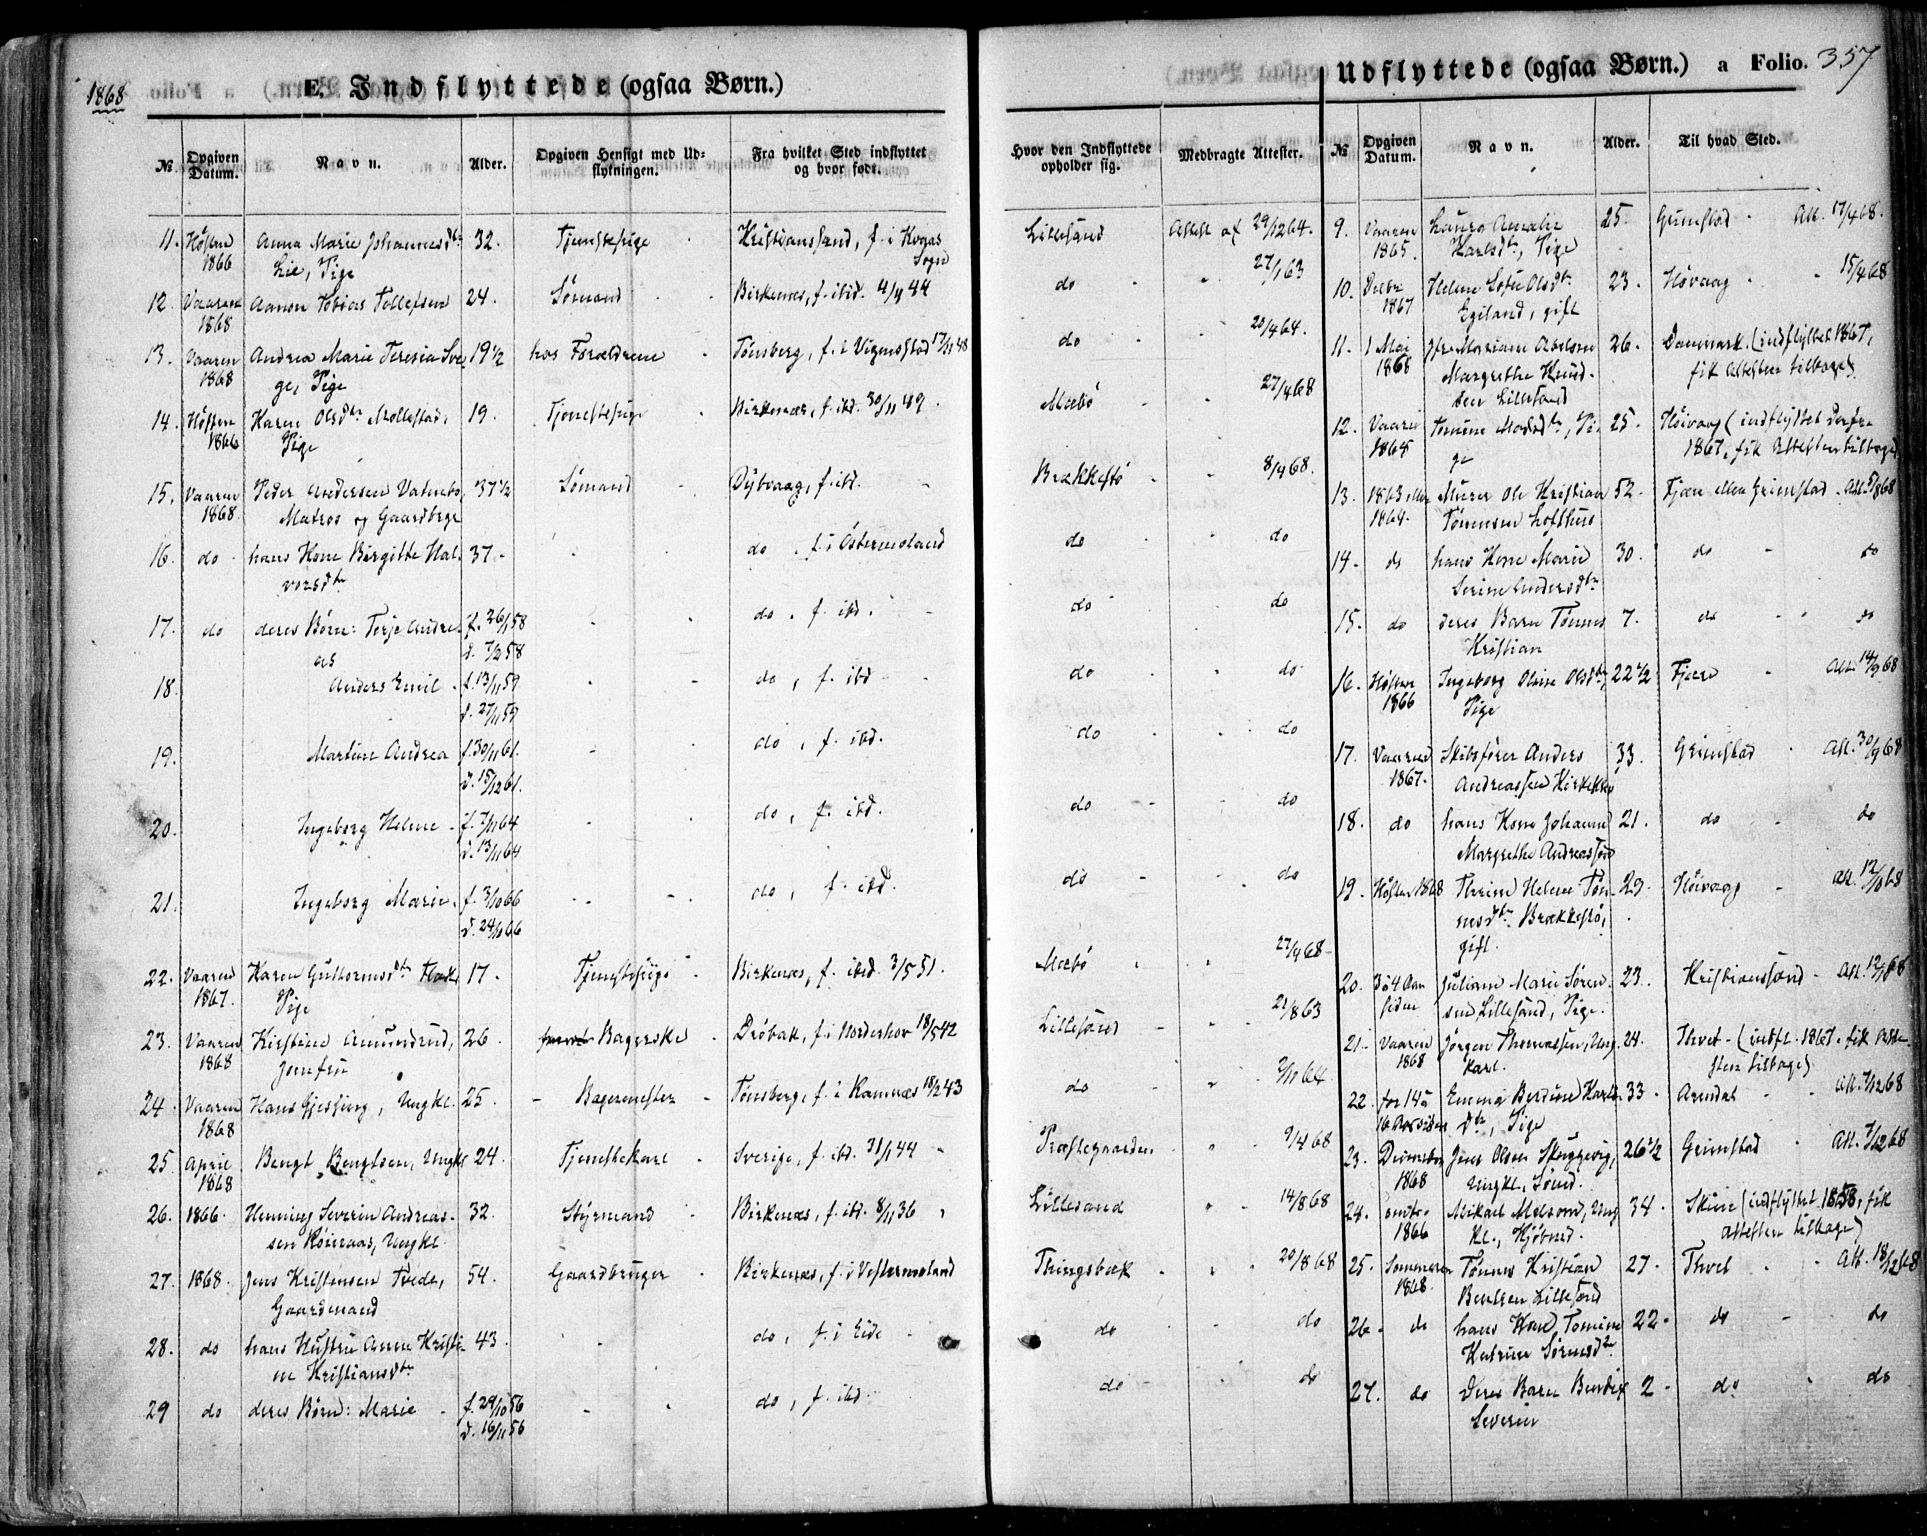 1868
E. Indflyttede (ogsaa Børn.)
№
Opgiven Datum.
Navn.
Alder.
Opgiven Hensigt med Udflytningen.
Fra hvilket Sted indflyttet og hvor født.
Hvor den Indflyttede opholder sig.
Medbragte Attester.
11. Høsten 1866 Anna Marie Johannesdtr Lie, Pige 32. Tjenestepige Kristianssand, f. i Sogn Lillesand Attest af 29/12 64.
12. Vaaren 1868 Aanon Tobias Tellefsen 24. Sømand Birkenæs, f. ibid. 4/4 44 do 27/1 63
13. Vaaren 1868 Andrea Marie Teresia Pige 19 1/2 hos Forældrene Tønsberg, f. i 17/11 48 do 20/4 64.
14. Høsten 1866 Karen Olsdtr Mollestad, Pige 19. Tjenestepige Birkenæs, f. ibd. 30/11 49. Mæbø 27/4 68
15. Vaaren 1868. Peder Andersen Vatnebo, Matros og Gaardbrgr 37 1/2 Sømand Dybvaag, f. ibd. Brækkestø 8/4 68.
16. do hans Kone Birgitte Halvorsdtr 37. do, f. i Østermoland do do
17. do deres Børn: Terje Andreas f. 26/1 58 d. 7/2 58 do, f. ibd. do do
18. Anders Emil f. 13/11 59 d. 27/11 59 do, f. ibd do do
19. Martine Andrea f. 30/11 61. d. 15/12 61. do, f. ibd. do do
20. Ingeborg Helene f. 7/11 64 d. 13/11 64 do, f. ibd. do do
21. Ingeborg Marie f. 3/10 66 d. 24/10 66 do, f. ibd. do do
22. Vaaren 1867. Karen Guttormsdtr Pige 17. Tjenestepige Birkenæs, f. ibid 3/5 51. Mæbø 27/4 68
23. Vaaren 1868 Kirstine Amundrud, Jomfru 26. Bagerske Drøbak, f. i Norderhov 18/5 42 Lillesand 21/8 63
24. Vaaren 1868 Hans Gjessing, Ungkl. 25. Bagermester Tønsberg, f. i Ramnæs 18/2 43 do 64
25. April 1868 Bengt Bengtsen, Ungkl 24. Tjenestekarl Sverige, f. ibid. 31/1 44 Præstegaarden 9/4 68
26. 1866. Henning Severin Andreassen Røieraas, Ungkl. 32. Styrmand Birkenæs, f. ibd 8/11 36 Lillesand 14/8 68
27. 1868. Jens Kristensen Tvede, Gaardmand 54. Gaardbruger Birkenæs, f. i Vestermoland Tingsbæk 20/8 68
28. do hans Hustru Anne Kristine Kristiansdtr 43. do, f. i Eide do do
29 do deres Børn: Marie f. 29/10 56 d. 16/11 56 do, f. ibd do do
Udflyttede (ogsaa Børn.) a Folio. 357
№
Opgiven Datum.
Navn.
Alder.
Til hvad Sted.
9. Vaaren 1865. Laura Amalie Karlsdtr, Pige 25. Grimstad Att. 17/4 68.
10. Decbr 1867 Helene Lovise Olsdtr Egiland, gift 23. Høvaag 15/4 68
11. 1 Mai 1868 Mariane Margrethe Knudsen Lillesand 26. Danmark (indflyttet 1867, fik Attesten tilbage)
12. Vaaren 1868 Tomine Madsdtr, Pige 25. Høivaag (indflyttet derfra 1867, fik Attesten tilbage)
13. 1863 eller 1864. Murer Ole Kristian Tønnesen Lofthus 52. Fjære eller Grimstad. Att. 5/8 68
14. do hans Kone Marie Serine Andersdtr 30. do do
15. do deres Barn Tønnes Kristian 7. do do
16. Høsten 1866 Ingeborg Oline Olsdtr, Pige 22 1/2 Fjære Att. 14/9 68
17. Vaaren 1867. Skibsfører Anders Andreassen 33. Grimstad Att. 30/9 68
18. do hans Kone Johanne Margrethe 21. do do
19. Høsten 1868 Therine Helene Tønnesdtr Brækkestø, gift. 29. Høivaag Att. 12/10 68
20. 3 à 4 Aar siden Juliane Marie Sørensen Lillesand, Pige. 23. Kristianssand Att. 68
21. Vaaren 1868 Jørgen Thomassen, Ungkarl. 24. Thvet (indfl. 1867, fik Attesten tilbage)
22. for 14 à 16 Aar siden Emma Berdine Karlsdtr, Pige 33. Arendal Att. 7/12 68
23. 1868 Jens Olsen Skuggevig, Ungkl., Sømd. 26 1/2 Grimstad Att. 7/12 68
24. omtr. 1866 Mikael Melsom, Ungkl., Kjøbmd. 34. Skien (indflyttet 1858, fik Attesten tilbage)
25. Sommeren 1868. Tønnes Kristian Lillesand 27. Thvet Att. 18/12 68
26. do hans Kone Tomine Katrine Sørensdtr 22. do do
27. do Deres Barn Severin 2 do do